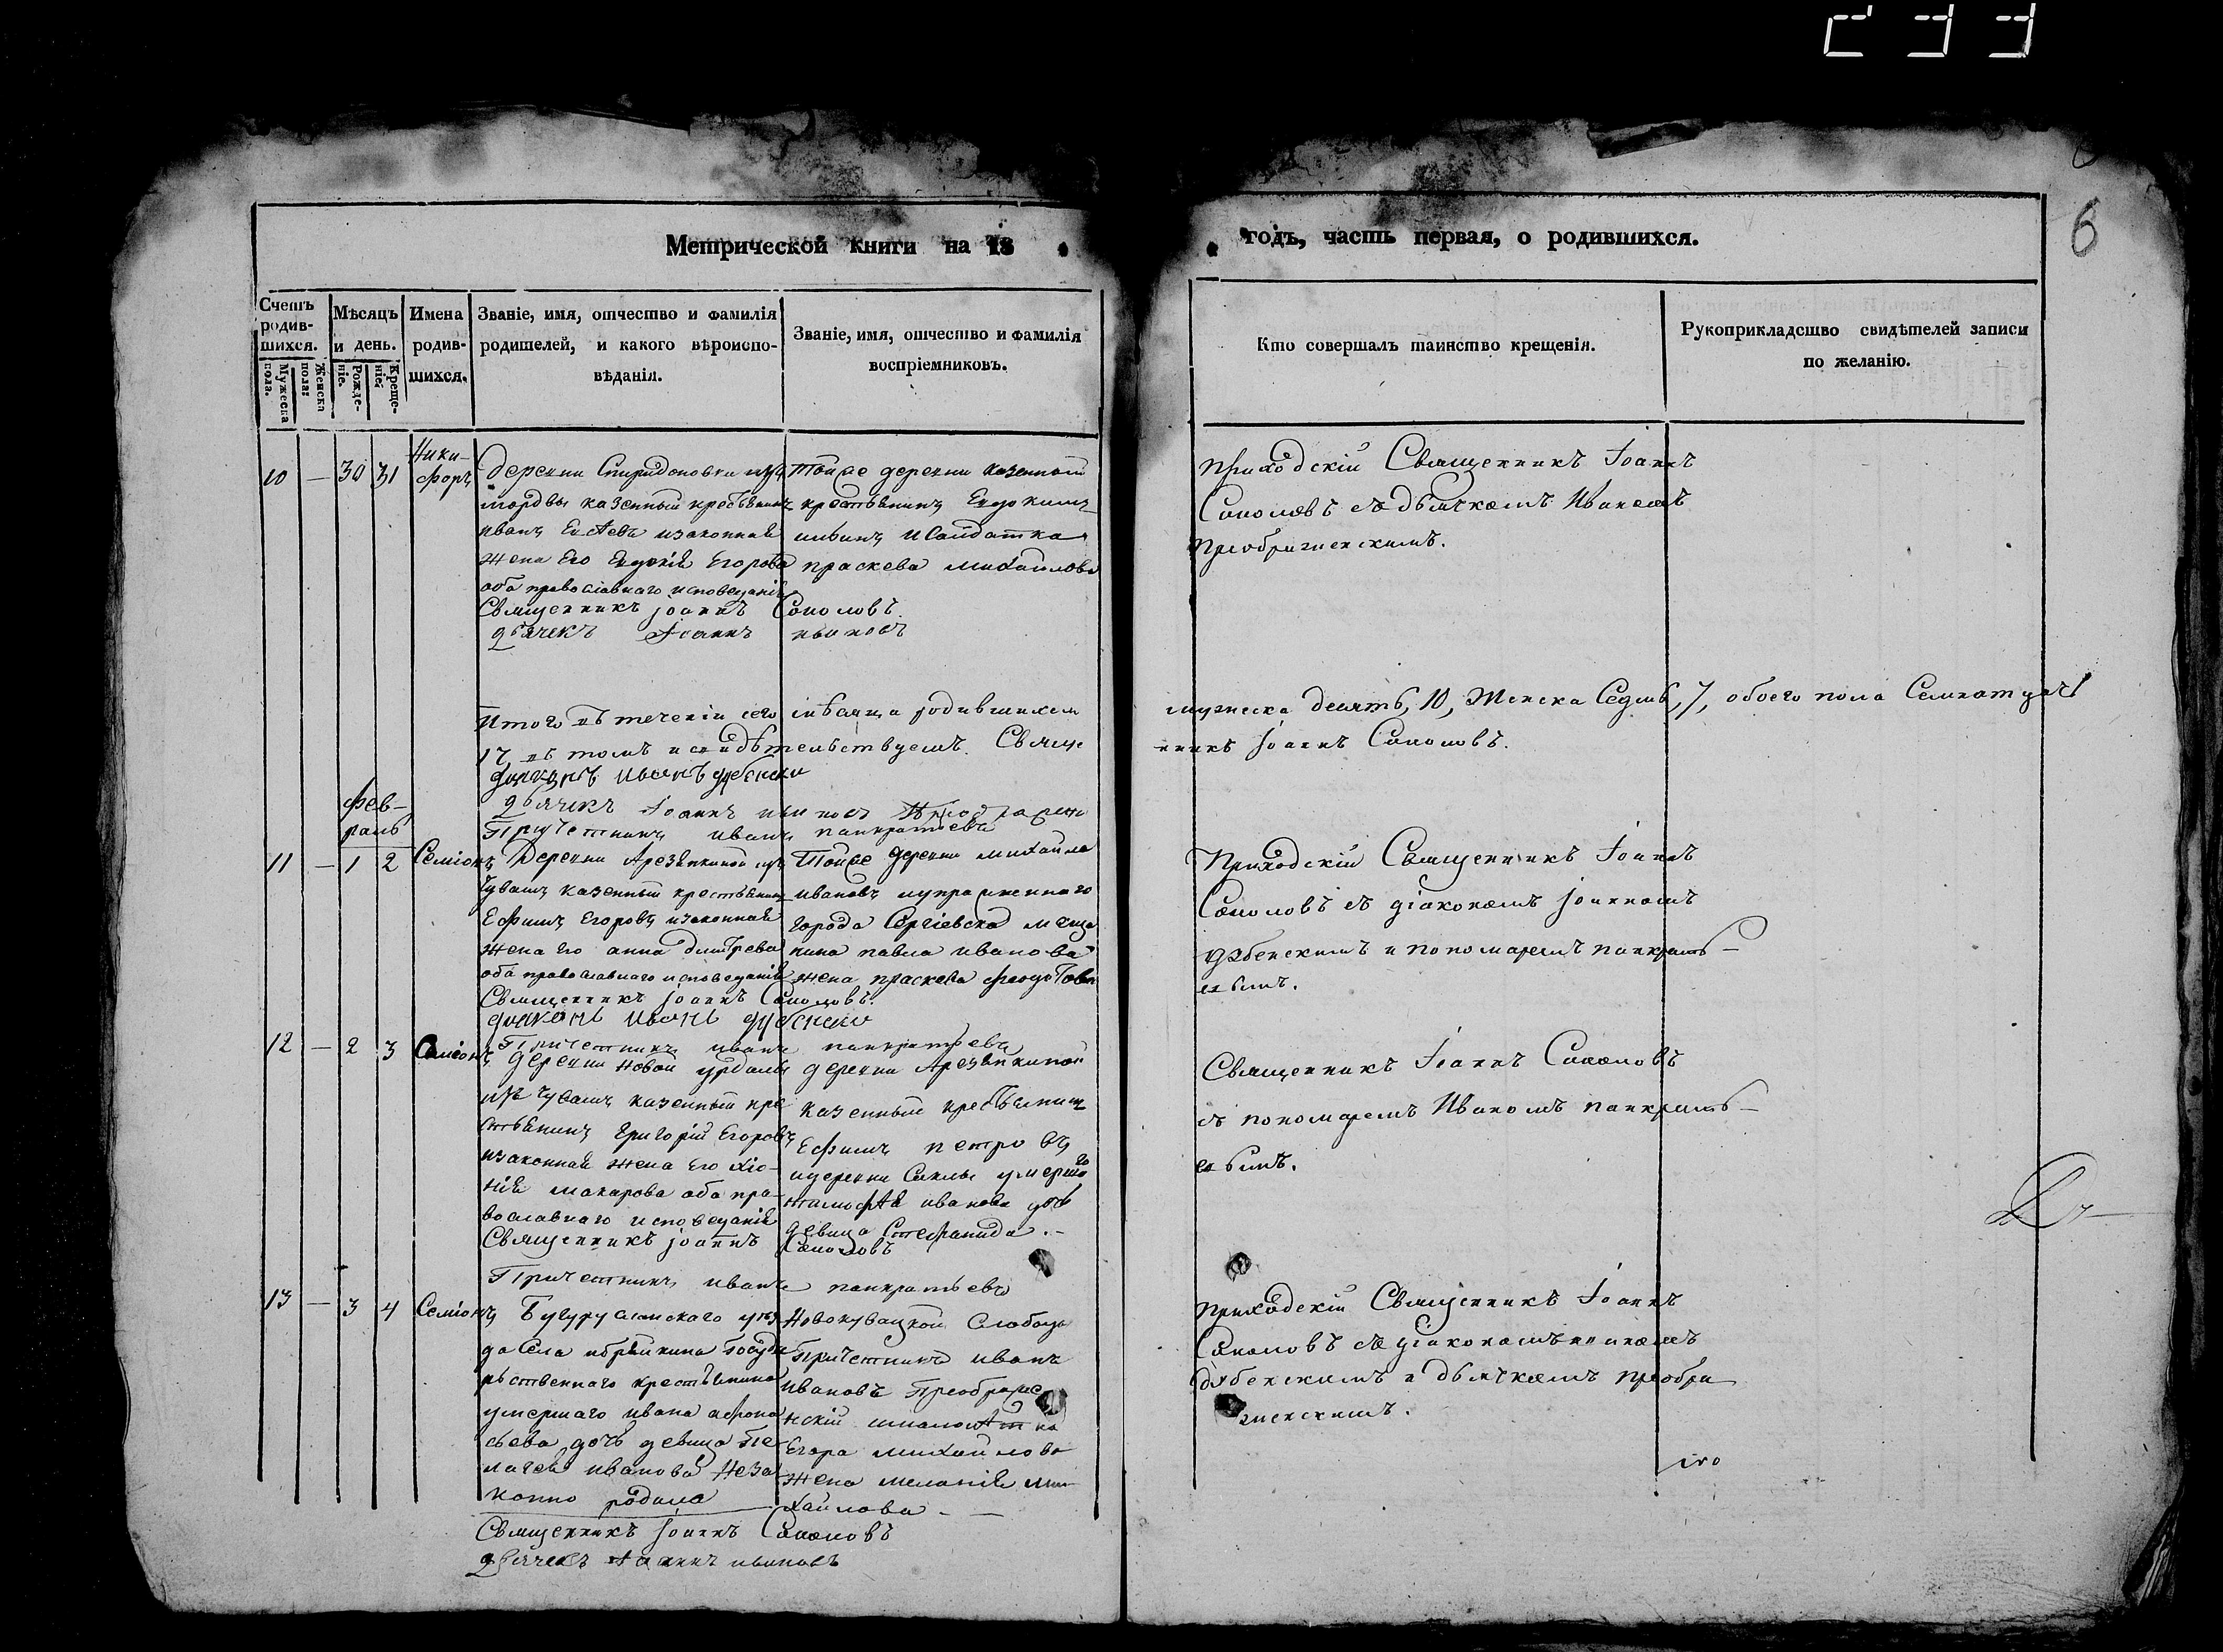 6
Метрической книги на 18
годъ, часть первая, о родившихся.
Счетъ родившихся.
Мужеска пола.
Женска пола:
Мѣсяцъ и день.
Рожденіе.
Крещеніе.
Имена родившихся.
Званіе, имя, отчество и фамилія
родителей, и какого вѣроиспо-
вѣданія.
Званіе, имя, отчество и фамилія
воспріемниковъ.
Кто совершалъ таинство крещенія.
Рукоприкладство свидѣтелей записи
по желанію.
10 — 30 31
Ники-
форъ
Деревни Спиридоновки изъ
мордвы казенный крестьянинъ
иванъ изаконная
жена Его Егорова
оба православнаго исповеданія
Священникъ Іоаннъ Соколовъ.
дьячекъ Іоаннъ ивановъ
Тойже деревни казенный
крестьянинъ Евдокимъ
исолдатка
праскева михайлова
приходскій Священникъ Іоаннъ
Соколовъ съ дьячкомъ Иваномъ
преображенскимъ.
Итого въ теченіи сего мѣсяца родившихся
мужеска десять, 10, Женска Седмь, 7, обоего пола Семнатцать
17, въ томъ исвидѣтельствуемъ. Свяще
нникъ Іоаннъ Соколовъ.
дьяконъ Иванъ дубенски
дьячекъ Іоаннъ ивановъ
Причетникъ иванъ панкратьевъ
фев-
раль
11 — 1 2
Семіонъ
Деревни Арезяпкиной изъ
Чувашъ казенный крестьянинъ
Ефимъ Егоровъ изаконная
жена его анна дмитрева
оба православнаго исповеданія
Священникъ Іоаннъ Соколовъ.
дьяконъ Иванъ дубенски
Причетникъ иванъ панкратьевъ
Тойже деревни михайла
ивановъ иупраздненнаго
города Сергіевска меща
нина павла иванова
жена праскева феодотова
Приходскій Священникъ Іоаннъ
Соколовъ съ діакономъ Іоанномъ
дубенскимъ и пономаремъ панкрать-
евымъ.
12 — 2 3
Семіонъ
деревни новой
изъ Чувашъ казенный кре
стьянинъ григорій Егоровъ
изаконная жена Его хіо-
нія макарова оба пра-
вославнаго исповеданія
Священникъ Іоаннъ Соколовъ
Причетникъ иванъ панкратьевъ
деревни Арезяпкиной
казенный крестьянинъ
Ефимъ петровъ
идеревни умершаго
тимофѣя иванова дочь
девица Стефанида.-
Священникъ Іоаннъ Соколовъ
съ пономаремъ Иваномъ панкрать-
евымъ.
13 — 3 4
Семіонъ
Бугурусланскаго уез
да села ибряйкина госуда
рьственнаго крестьянина
умершаго ивана афона
сьева дочь девица пе-
лагея иванова неза
конно родила
Священникъ Іоаннъ Соколовъ
дьячекъ Іоаннъ ивановъ
Новокувацкой Слободы
Причетникъ иванъ
ивановъ Преображе
нскій
Егора михайлова
жена меланія ми
хайлова - —
приходскій Священникъ Іоаннъ
Соколовъ съ діакономъ иваномъ
дубенскимъ и дьячкомъ преобра
женскимъ.